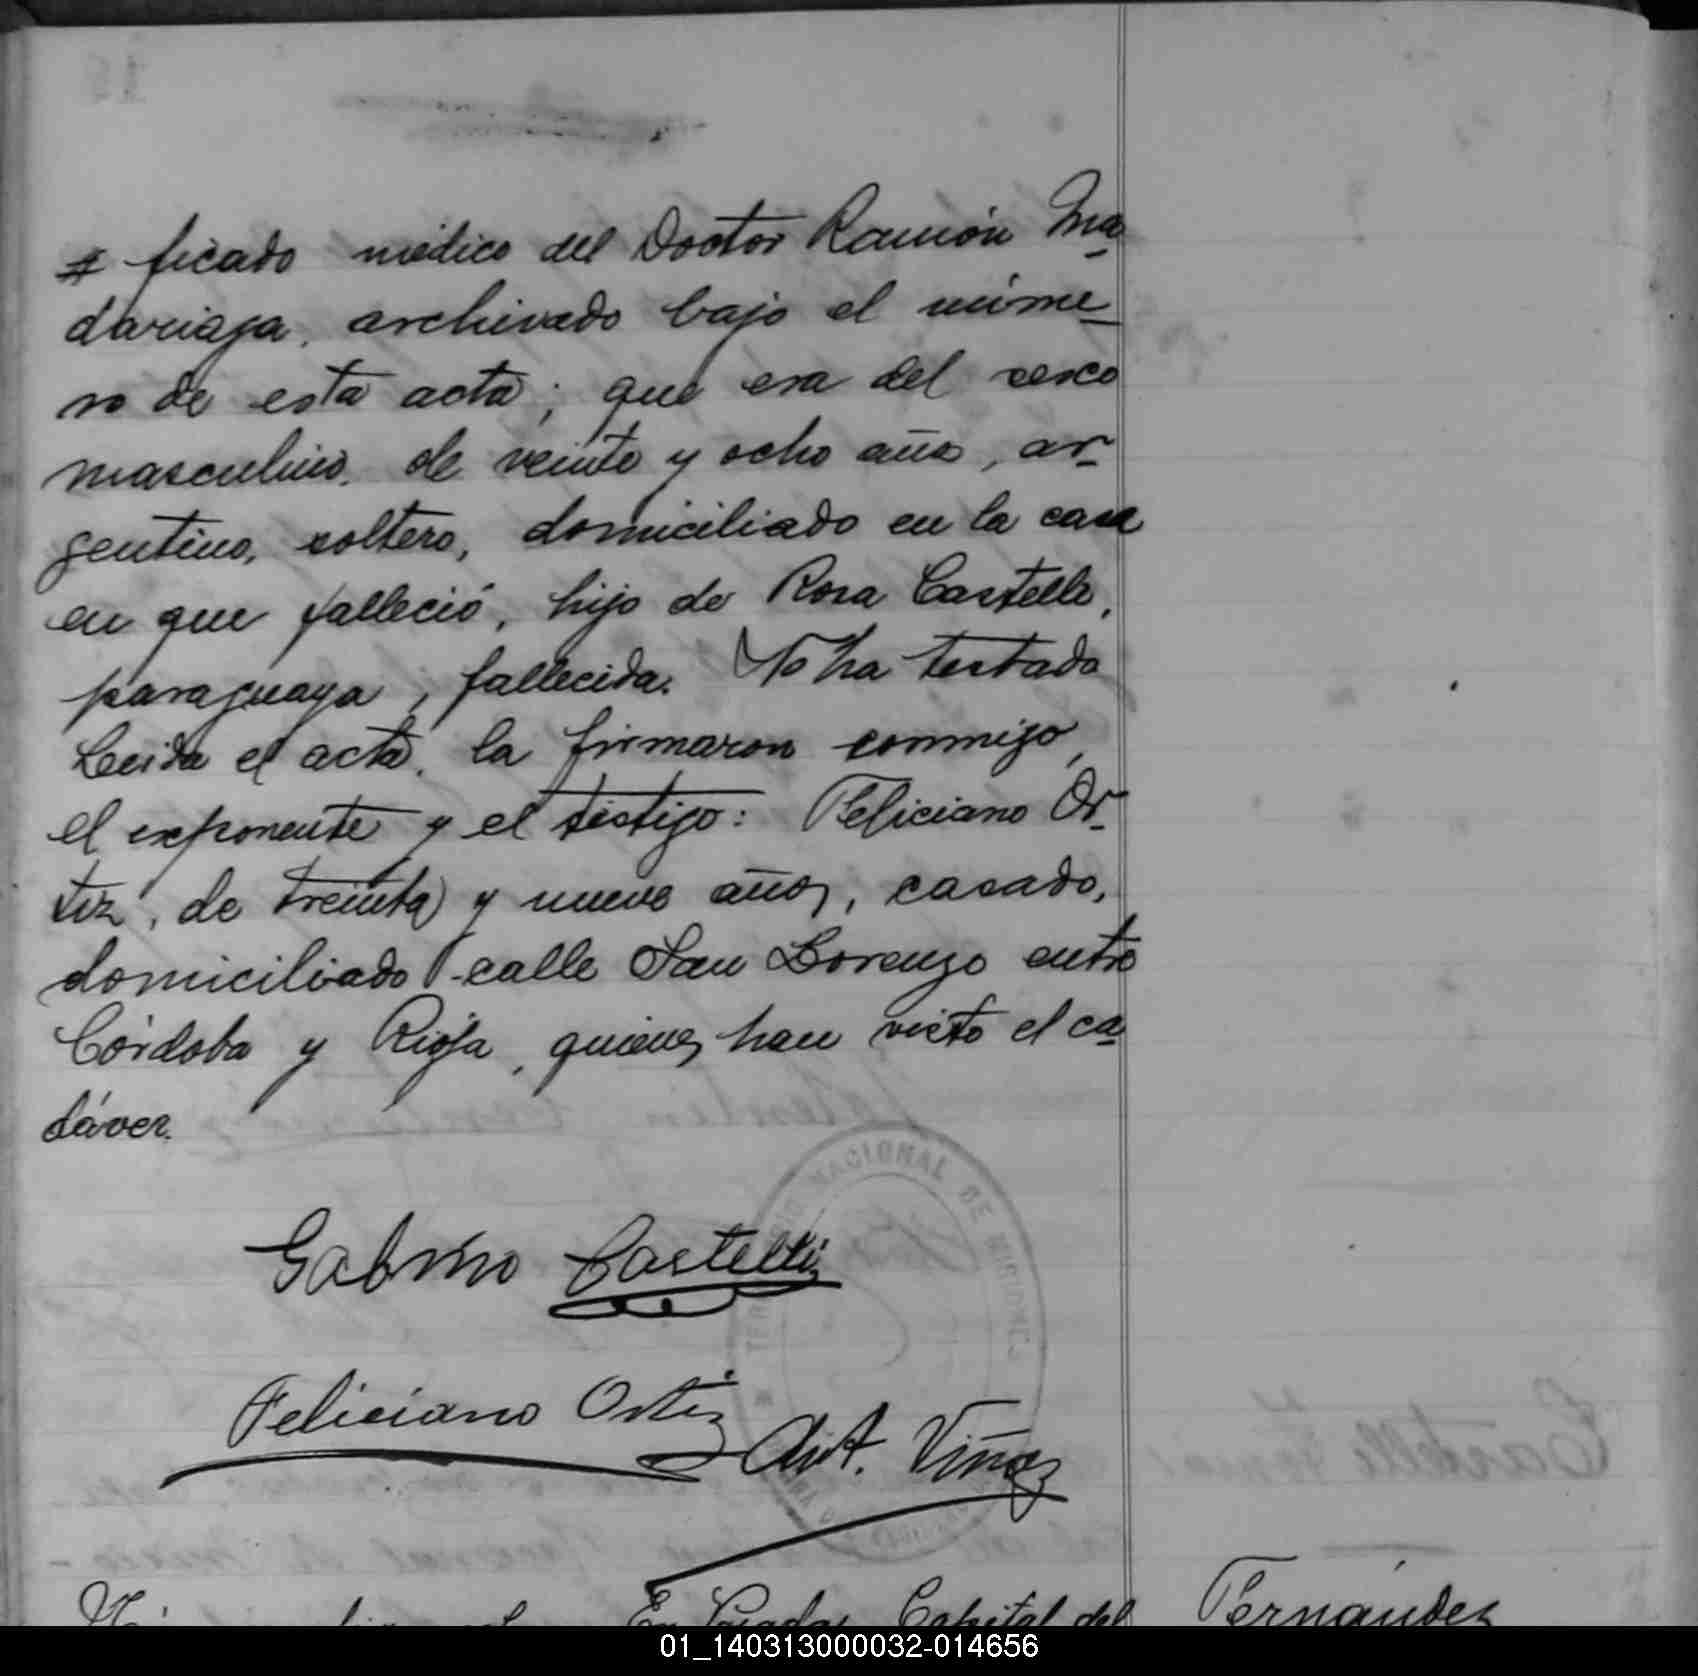 ficado médico del Doctor Ramón Ma-
dariaga, archivado bajo el núme-
ro de esta acta; que era del sexo
masculino, de veinte y ocho años, ar-
gentino, soltero, domiciliado en la casa
en que falleció, hijo de Rosa Castelli,
paraguaya, fallecida. No ha testado
Leida el acta, la firmaron conmigo,
el exponente y el testigo: Feliciano Or-
tiz, de treinta y nueve años, casado,
domiciliado calle San Lorenzo entre
Córdoba y Rioja, quienes han visto el ca-
dáver.
TERRITORIO NACIONAL DE MISIONES
Gabino Castelli
Feliciano Ortiz
Ant. Viñas
En Posadas Capital del
Fernández
01_140313000032-014656